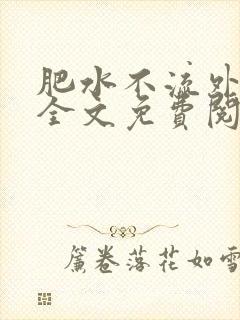 肥水不流外
全文免費閱
簾卷落花如雪